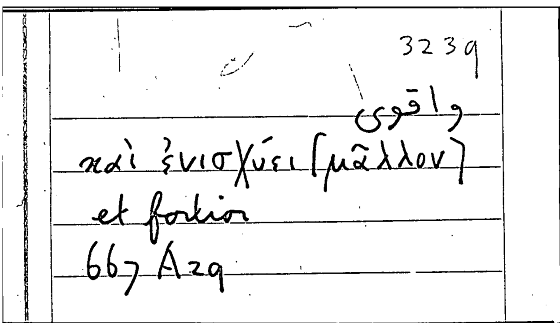 3239
واقوى
καὶ ἐνισχύει [μᾶλλον]
et fortior
667 A29